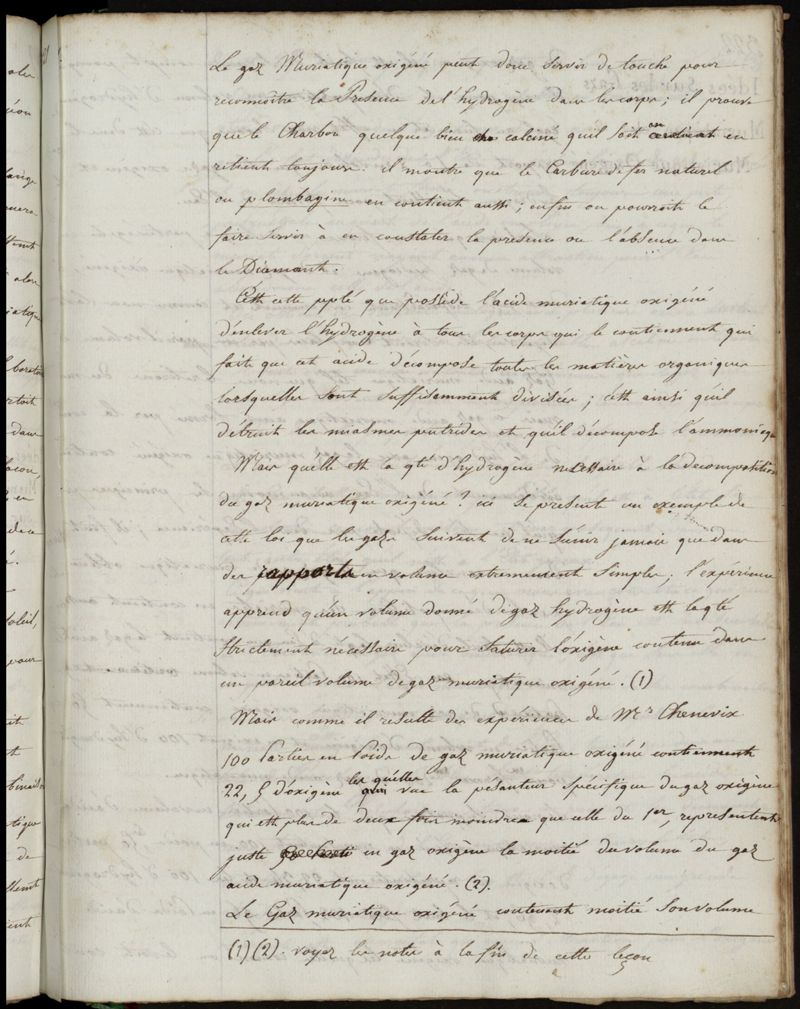 Le gaz Muriatique oxigéné peut donc servir de touche pour
reconnoitre la Presence de l'hydrogène dans les corps; il prouve
que le Charbon quelque bien calciné qu'il soit en
retient toujours. il montre que le Carbure de fer naturel
ou plombagine en contient aussi; enfin on pourroit le
faire servir à en constater la presence ou l'absence dans
le Diamant.
C'est cette ppté que possède l'acide muriatique oxigéné
d'enlever l'hydrogène à tous les corps qui le contiennent qui
fait que cet acide décompose toutes les matières organiques
lorsqu'elles sont suffisamment divisées; c'est ainsi qu'il
détruit les miasmes putrides et qu'il décompose l'ammoniaque
Mais qu'elle est la qté d'hydrogène nécessaire à la decomposition
du gaz muriatique oxigéné? ici se presente un exemple de
cette loi que les gaz suivent de ne s'unir jamais que dans
des rapports en volume extremement simples; l'expérience
apprend qu'un volume donné de gaz hydrogène est la qté
strictement nécessaire pour saturer l'oxigène contenu dans
un pareil volume de gaz muriatique oxigéné. (1)
Mais comme il resulte des expériences de Mr Chenevix
100 parties en poids de gaz muriatique oxigéné contiennent
22,5 d'oxigène les quelles vue la pésanteur spécifique du gaz oxigène
qui est plus de deux fois moindre que celle du 1er, representent
juste en gaz oxigène la moitié du volume du gaz
acide muriatique oxigéné. (2).
Le Gaz muriatique oxigéné contenant moitié son volume
(1) (2). voyez les notes à la fin de cette leçon